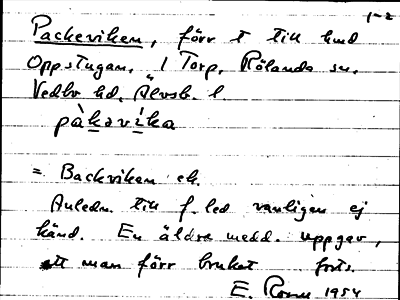 1-2
Packeviken, förr t till hmd
Oppstugan, 1 Torp, Rölanda sn.
Vedbo hd, Älvsb. l.
pàkəvika
= Backviken ek.
Anledn. till f. led vanligen ej
känd. En äldre medd. uppgav,
att man förr brukat forts.
E. 1954